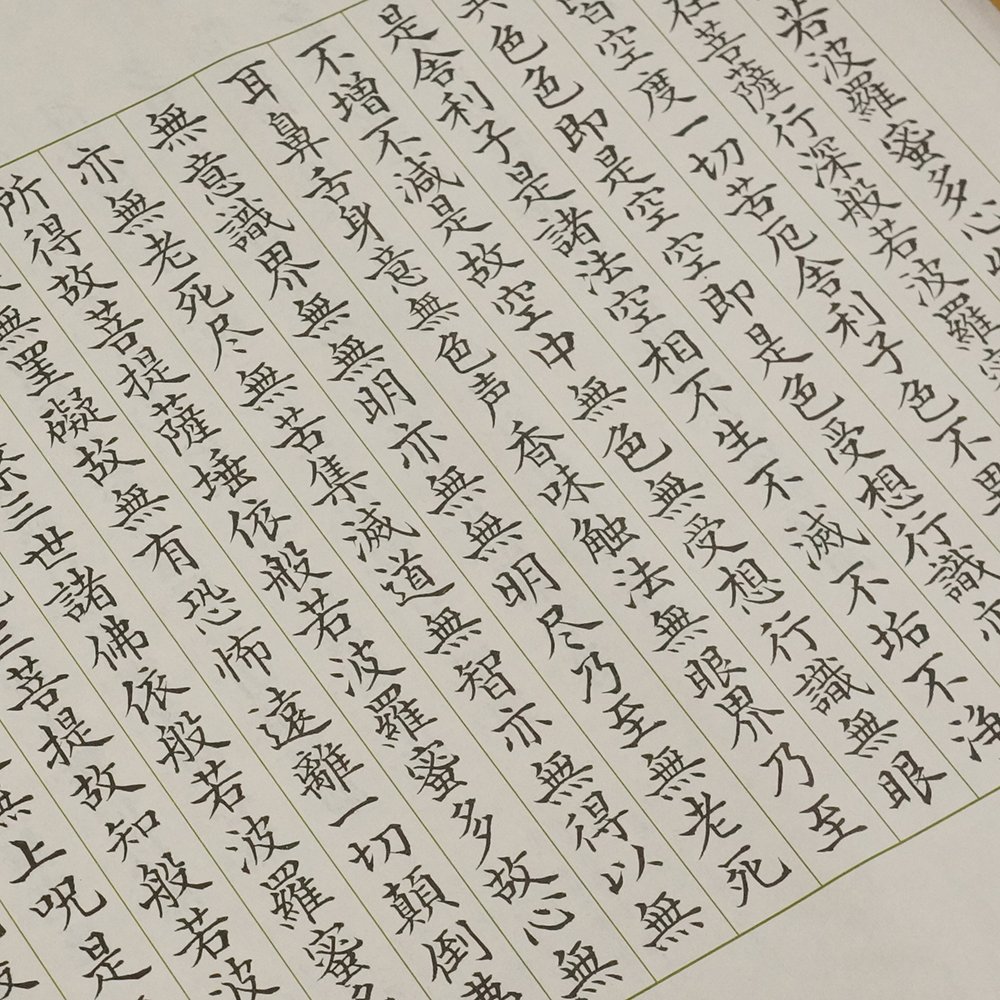 若波羅蜜多心
在菩薩行深般若波羅
皆空度一切苦厄舍利子色不異
色色即是空空即是色受想行識亦
是舍利子是諸法空相不生不滅不垢不浄
不増不減是故空中無色無受想行識無眼
耳鼻舌身意無色声香味触法無眼界乃至
無意識界無無明亦無無明尽乃至無老死
亦無老死尽無苦集滅道無智亦無得以無
所得故菩提薩埵依般若波羅蜜多故心無
無罣礙故無有恐怖遠離一切顛倒夢
三世諸佛依般若波羅蜜多
三菩提故知般若波
無上呪是